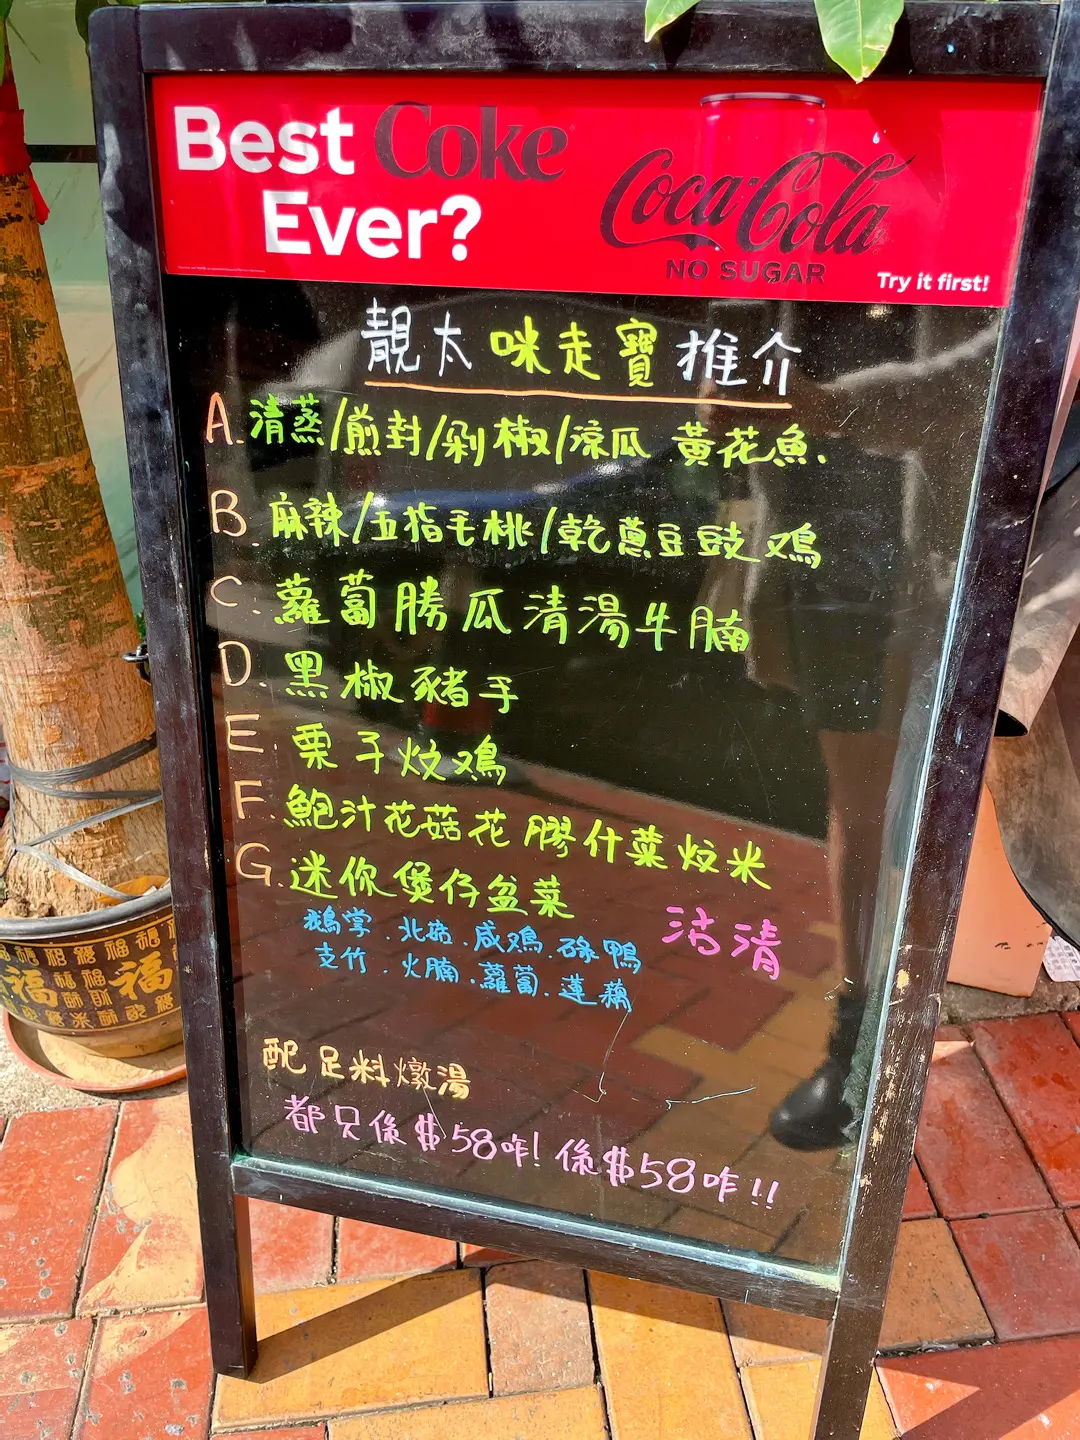 Best Coke
Ever?
Coca-Cola
NO SUGAR
Try it first!
靚太咪走寶推介
A. 清蒸/煎封/剁椒/涼瓜 黃花魚.
B. 麻辣/五指毛桃/乾蔥豆豉鳮
C. 蘿蔔勝瓜清湯牛腩
D. 黑椒豬手
E. 栗子炆鳮
F. 鮑汁花菇花膠什菜炆米
G. 迷你煲仔盆菜
沽清
鵝掌.北菇.咸鳮.碌鴨
支竹.火腩.蘿蔔.蓮藕
配足料燉湯
都只係$58咋!係$58咋!!
福
福